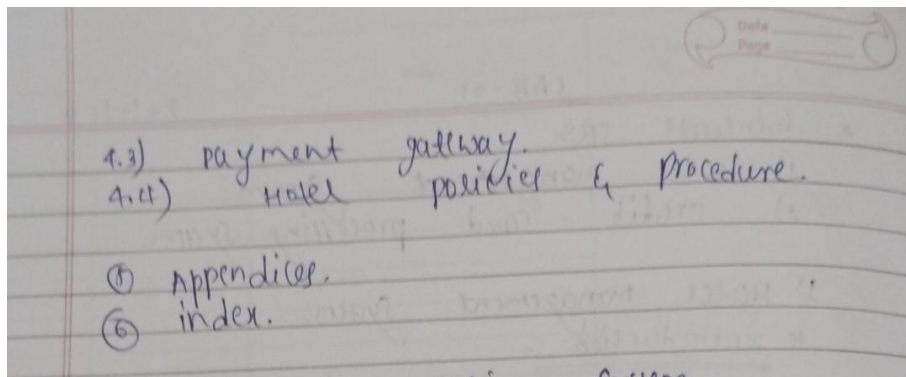 Date
Page
4.3) payment gateway.
4.4) Hotel policies & procedure.
⑤ Appendices.
⑥ index.